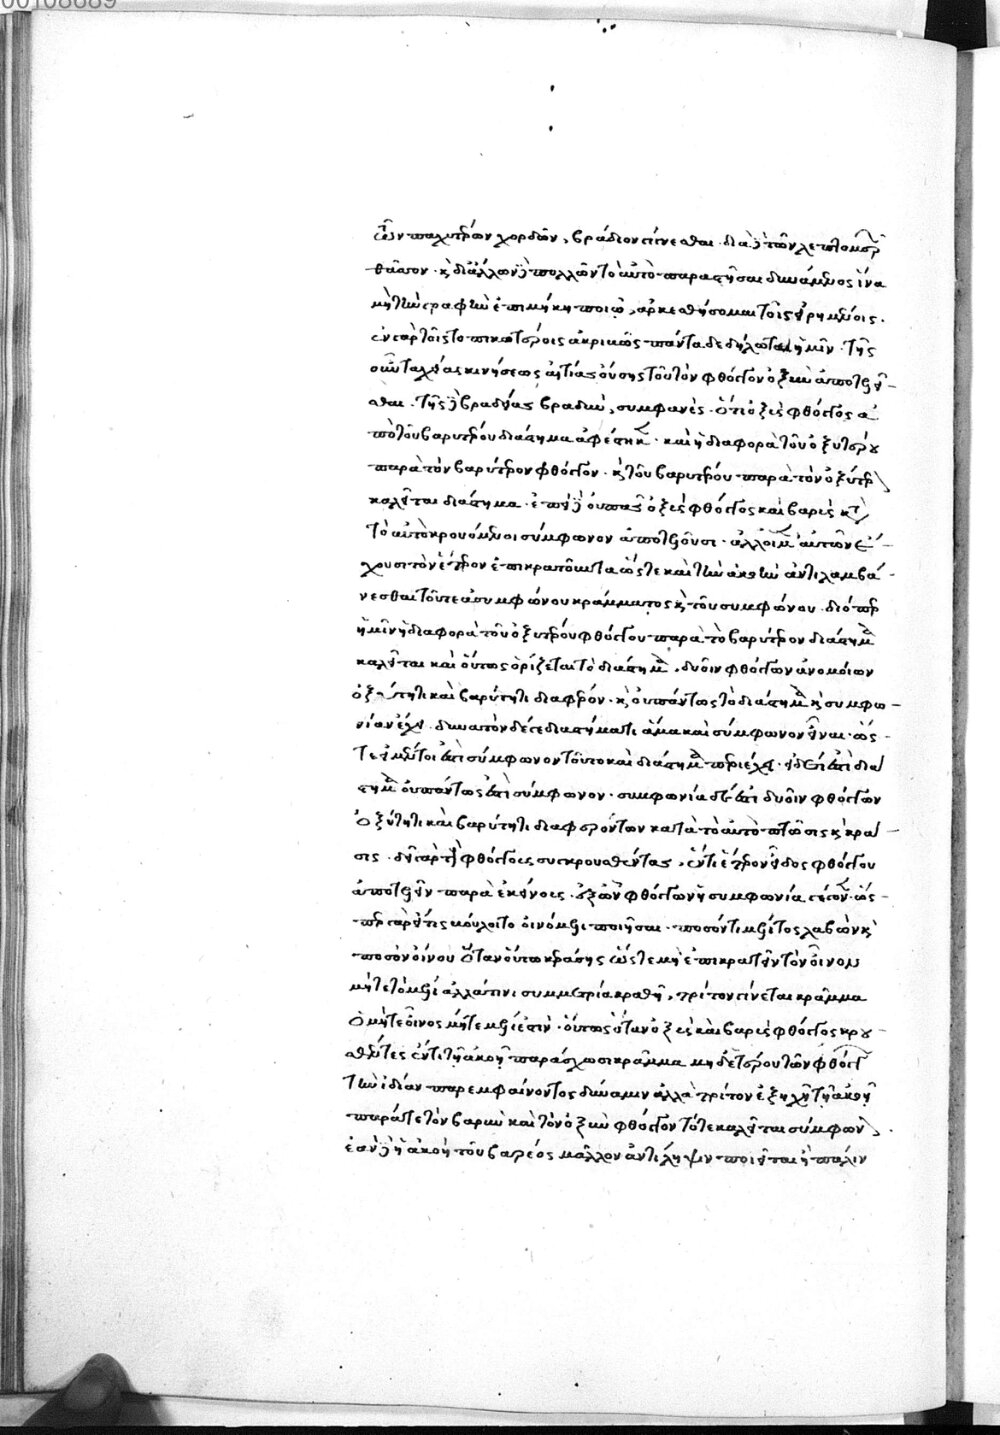 00108689
ὧν παχυτέρων χορδῶν, βράδιον γίνεσθαι. διὰ δὲ τῶν λεπτομερῶν
θᾶττον. κ δι' ἄλλων δὲ πολλῶν τὸ αὐτὸ παραστῆσαι δυνάμενος ἵνα
μὴ τὴν γραφὴν ἐπιμήκη ποιῶ, ἀρκεσθήσομαι τοῖς εἰρημένοις.
ἐν γὰρ τοῖς τοπικωτέροις ἀκριβῶς πάντα δεδήλωται ἡμῖν. τῆς
οὖν ταχείας κινήσεως αἰτίας οὔσης τοῦ τὸν φθόγγον ὀξὺν ἀποτελεῖ-
σθαι. τῆς δὲ βραδείας βραδὺν, συμφανὲς ὅτι ὀξὺς φθόγγος ἀ
πὸ τοῦ βαρυτέρου διάστημα ἀφέστηκε. καὶ ἡ διαφορὰ τοῦ ὀξυτέρου
παρὰ τὸν βαρύτερον φθόγγον. κ τοῦ βαρυτέρου παρὰ τὸν ὀξύτερον
καλεῖται διάστημα. ἐπεὶ δὲ οὐ πᾶς ὀξὺς φθόγγος καὶ βαρὺς κατὰ
τὸ αὐτὸ κρουόμενοι σύμφωνον ἀποτελοῦσι. ἀλλ' οἱ μὲν αὐτῶν ἔ-
χουσι τὸν ἕτερον ἐπικρατοῦντα ὥστε καὶ τὴν ἀκοὴν ἀντιλαμβά-
νεσθαι τοῦ τε ἀσυμφώνου κράμματος κ τοῦ συμφώνου. διόπερ
ἡμῖν ἡ διαφορὰ τοῦ ὀξυτέρου φθόγγου παρὰ τὸ βαρύτερον διάστημα
καλεῖται καὶ οὕτως ὁρίζεται τὸ διάστημα. δυοῖν φθόγγων ἀνομοίων
ὀξύτητι καὶ βαρύτητι διαφέρον. κ οὐ πάντως τὸ διάστημα κ συμφω-
νίαν ἔχει. δυνατὸν δέ γε διαστήματι ἅμα καὶ σύμφωνον εἶναι. ὡς-
τε εἰ μέντοι ἐστὶ σύμφωνον τοῦτο καὶ διάστημα περιέχει. εἰ δέ τι ἐστὶ διά
στημα οὐ πάντως ἐστὶ σύμφωνον. συμφωνία δέ ἐστι δυοῖν φθόγγων
ὀξύτητι καὶ βαρύτητι διαφερόντων κατὰ τὸ αὐτὸ πτῶσις κ κρᾶ-
σις. δεῖ γὰρ τοὺς φθόγγους συγκρουσθέντας, ἕν τι ἕτερον εἶδος φθόγγου
ἀποτελεῖν παρὰ ἐκείνοις. ἐξ ὧν φθόγγων ἡ συμφωνία γέγονεν. ὡς-
περ γὰρ εἴ τις βούλοιτο οἰνόμελι ποιῆσαι. ποσόν τι μέλιτος λαβὼν κ
ποσὸν οἴνου ὅταν οὕτω κεράσῃς ὥστε μὴ ἐπικρατεῖν τὸν οἶνον
μήτε τὸ μέλι ἀλλά τινι συμμετρίᾳ κραθῇ, τρίτον γίνεται κρᾶμμα
ὃ μήτε οἶνος μήτε μέλι ἐστίν. οὕτως ὅταν ὀξὺς καὶ βαρὺς φθόγγος κρου-
σθέντες ἕν τι τῇ ἀκοῇ παράσχωσι κρᾶμμα μηδετέρου τῶν φθόγγων
τὴν ἰδίαν παρεμφαίνοντος δύναμιν ἀλλὰ τρίτον ἐξηχῇ τῇ ἀκοῇ
παρά τε τὸν βαρὺν καὶ τὸν ὀξὺν φθόγγον τότε καλεῖται σύμφωνον.
ἐὰν δὲ ἡ ἀκοὴ τοῦ βαρέος μᾶλλον ἀντίληψιν ποιεῖται ἢ πάλιν